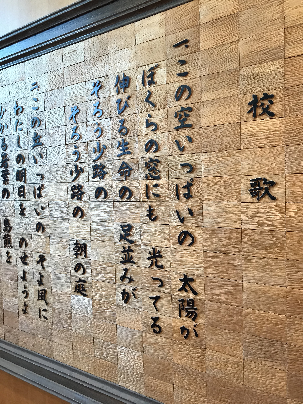 校歌
一、この空いっぱいの 太陽が
ぼくらの窓にも 光ってる
伸びる生命の 足並みが
そろう少路の
そろう少路の 朝の庭
二、この丘いっぱいの そよ風に
わたしの明日を のせようよ